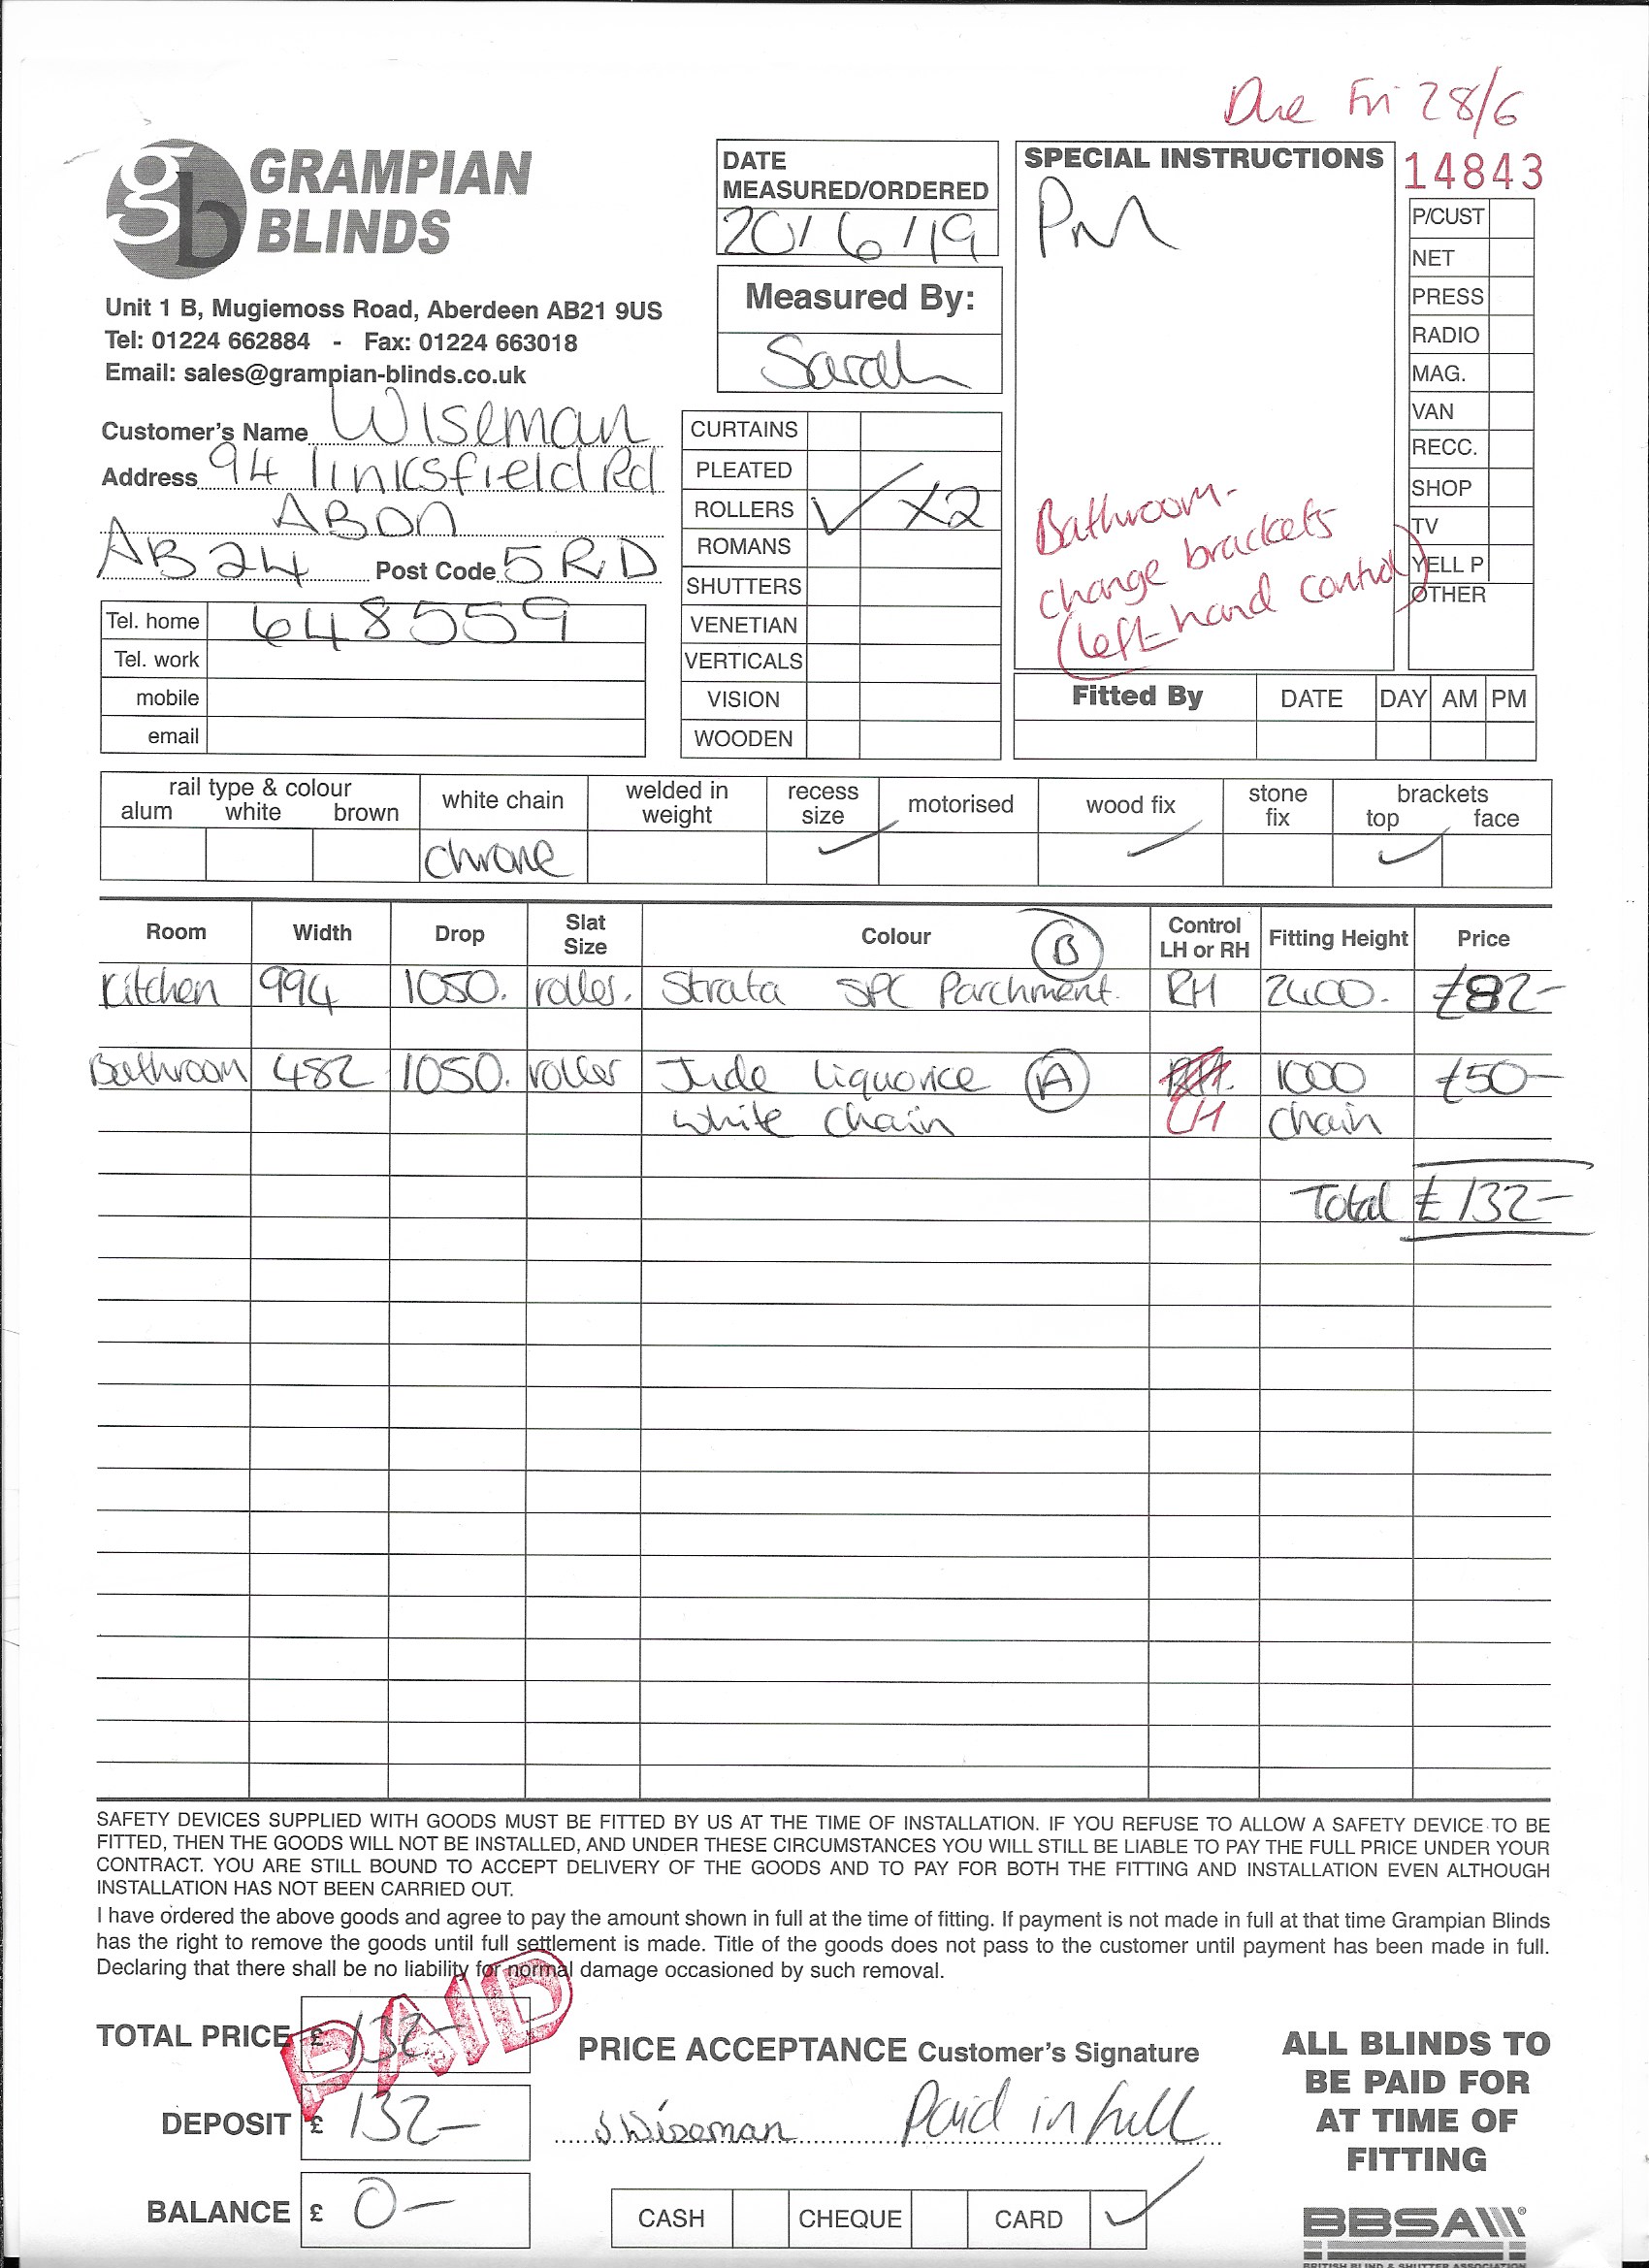 Due Fri 28/6
GRAMPIAN
BLINDS
Unit 1 B, Mugiemoss Road, Aberdeen AB21 9US
Tel: 01224 662884 - Fax: 01224 663018
Email: sales@grampian-blinds.co.uk
DATE
MEASURED/ORDERED
20/6/19
Measured By:
Sarah
SPECIAL INSTRUCTIONS
PM
Bathroom-
change brackets
(left hand control)
14843
P/CUST
NET
PRESS
RADIO
MAG.
VAN
RECC.
SHOP
TV
YELL P
OTHER
Customer's Name Wiseman
Address 94 linksfield Rd
ABDN
AB24 Post Code 5RD
Tel. home 648559
Tel. work
mobile
email
CURTAINS
PLEATED
ROLLERS ✓ X2
ROMANS
SHUTTERS
VENETIAN
VERTICALS
VISION
WOODEN
Fitted By DATE DAY AM PM
rail type & colour
alum white brown
white chain
chrome
welded in
weight
recess
size
✓
motorised
wood fix
✓
stone
fix
brackets
top face
✓
Room Width Drop Slat Size Colour Control LH or RH Fitting Height Price
Kitchen 994 1050. roller. Strata SPC Parchment. B RH 2400. £82-
Bathroom 482 1050. roller Jude Liquorice A RH. 1000 £50-
white chain LH chain
Total £132-
SAFETY DEVICES SUPPLIED WITH GOODS MUST BE FITTED BY US AT THE TIME OF INSTALLATION. IF YOU REFUSE TO ALLOW A SAFETY DEVICE TO BE
FITTED, THEN THE GOODS WILL NOT BE INSTALLED, AND UNDER THESE CIRCUMSTANCES YOU WILL STILL BE LIABLE TO PAY THE FULL PRICE UNDER YOUR
CONTRACT. YOU ARE STILL BOUND TO ACCEPT DELIVERY OF THE GOODS AND TO PAY FOR BOTH THE FITTING AND INSTALLATION EVEN ALTHOUGH
INSTALLATION HAS NOT BEEN CARRIED OUT.
I have ordered the above goods and agree to pay the amount shown in full at the time of fitting. If payment is not made in full at that time Grampian Blinds
has the right to remove the goods until full settlement is made. Title of the goods does not pass to the customer until payment has been made in full.
Declaring that there shall be no liability for normal damage occasioned by such removal.
TOTAL PRICE £ 132-
PAID
DEPOSIT £ 132-
BALANCE £ 0-
PRICE ACCEPTANCE Customer's Signature
S Wiseman Paid in full
CASH CHEQUE CARD ✓
ALL BLINDS TO
BE PAID FOR
AT TIME OF
FITTING
BBSA
BRITISH BLIND & SHUTTER ASSOCIATION